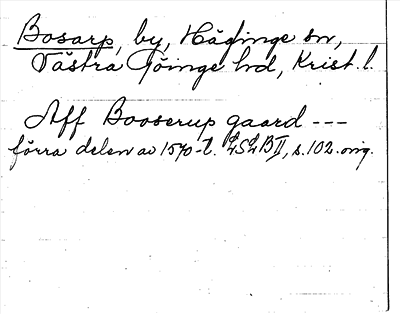 Bosarp, by, Häglinge sn,
Västra Göinge hd, Krist. l.
Aff Booserup gaard ---
förra delen av 1570-t. LSLB II, s. 102. orig.